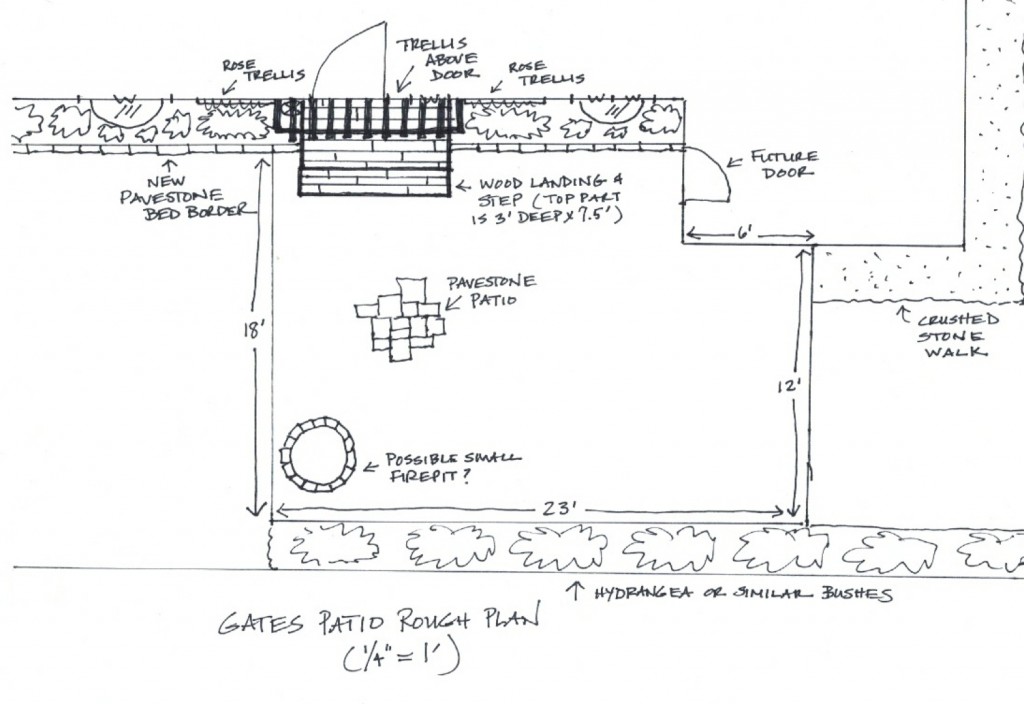 TRELLIS
ABOVE
DOOR
ROSE
TRELLIS
ROSE
TRELLIS
FUTURE
DOOR
NEW
PAVESTONE
BED BORDER
WOOD LANDING &
STEP (TOP PART
IS 3' DEEP X 7.5')
6'
PAVESTONE
PATIO
18'
CRUSHED
STONE
WALK
12'
POSSIBLE SMALL
FIREPIT?
23'
HYDRANGEA OR SIMILAR BUSHES
GATES PATIO ROUGH PLAN
(1/4" = 1')